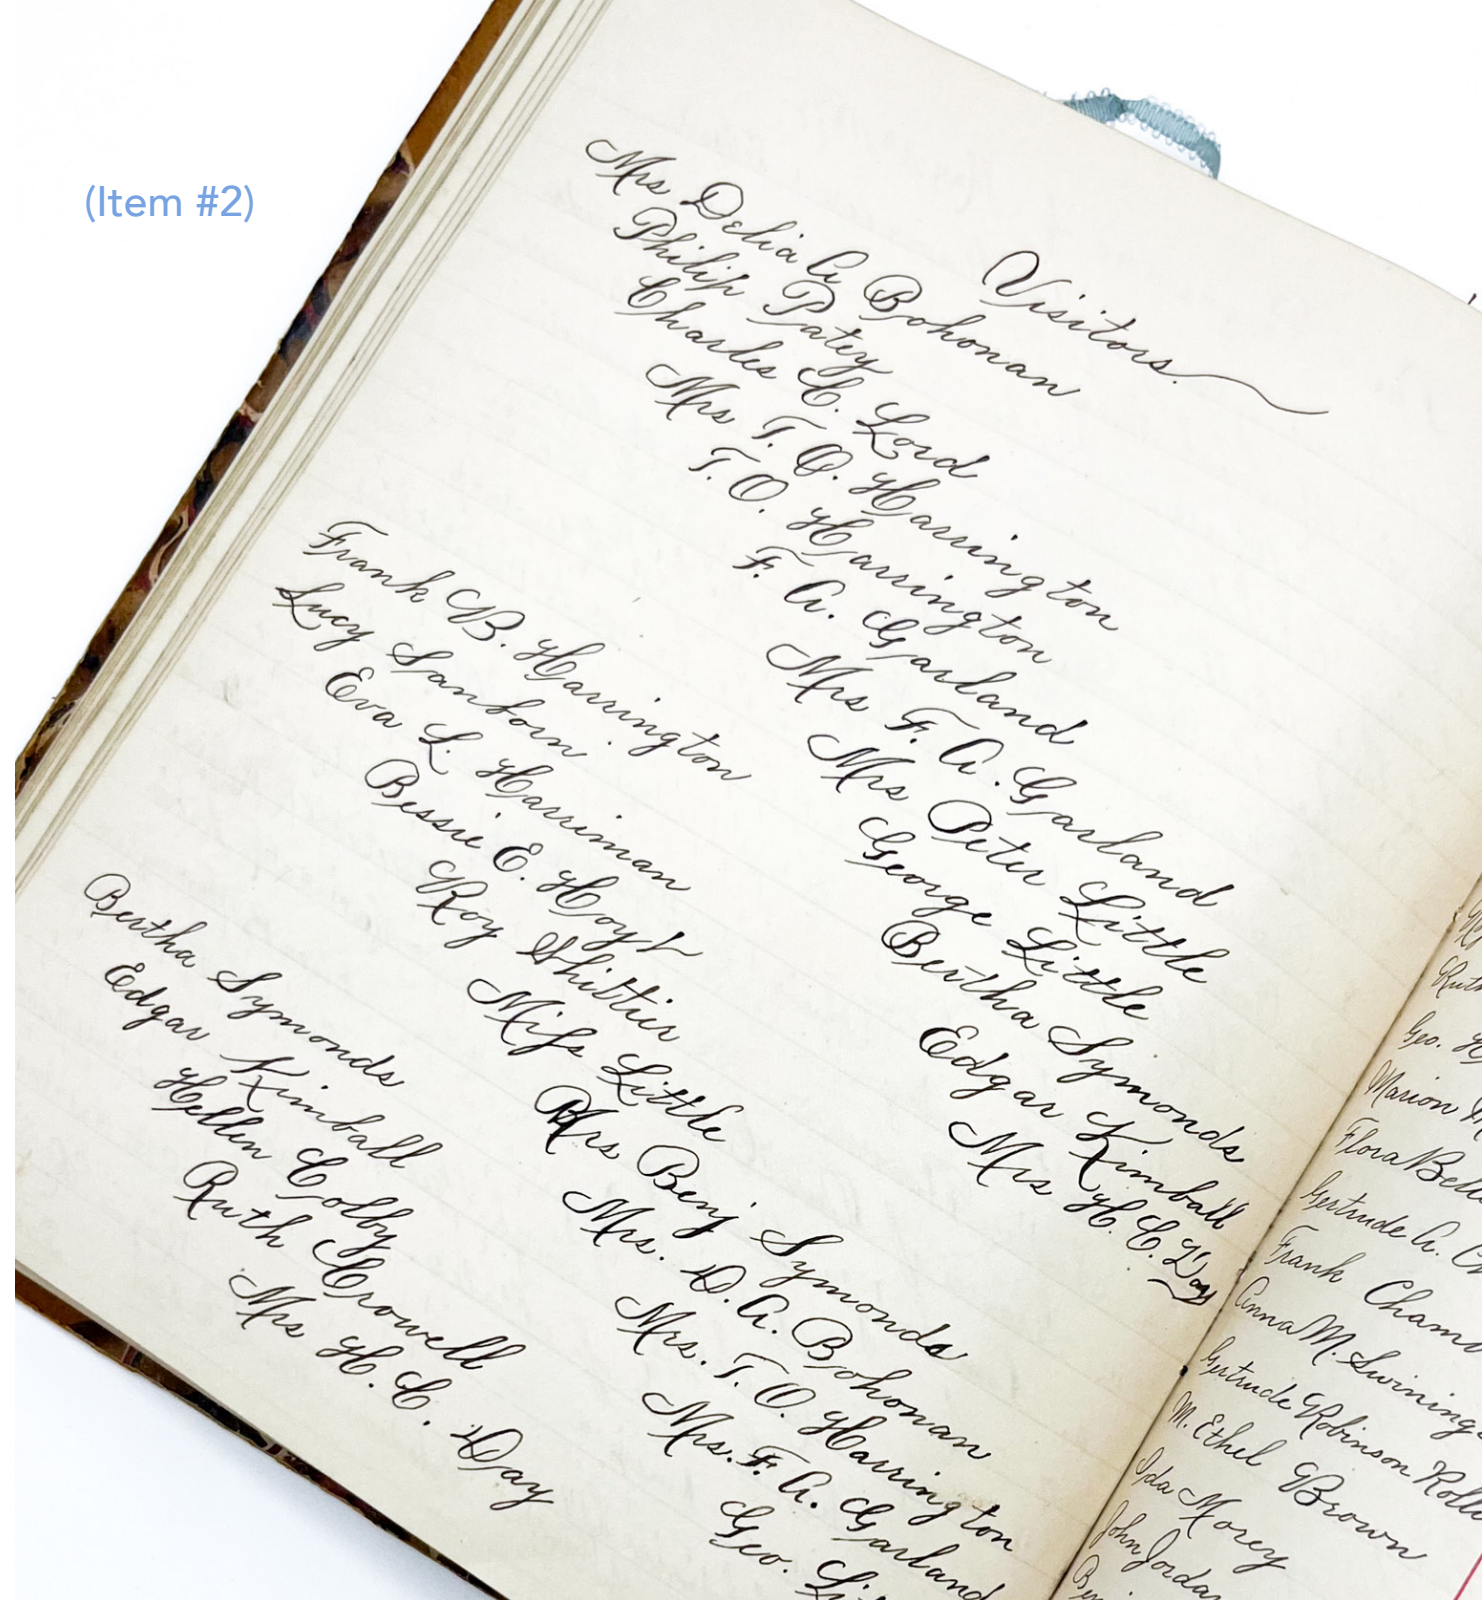 (Item #2)
Visitors.
Mrs Delia A Bohonan
Philip Patey
Charles C. Lord
Mrs T. O. Harrington
T. O. Harrington
F. A. Garland
Mrs F. A. Garland
Mrs Peter Little
George Little
Bertha Symonds
Edgar Kimball
Mrs H. C. Day
Frank B. Harrington
Lucy Sanborn.
Eva L. Harriman
Bessie E. Hoyt
Roy Whittier
Miss Little
Mrs Benj Symonds
Mrs. D. A. Bohonan
Mrs. T. O. Harrington
Mrs. F. A. Garland
Geo.
Bertha Symonds
Edgar Kimball
Hellen Colby
Ruth Crowell
Mrs H. C. Day
Geo.
Marion
Flora
Gertrude A.
Frank
Anna M.
Gertrude Robinson
M. Ethel Brown
Ida Morey
John